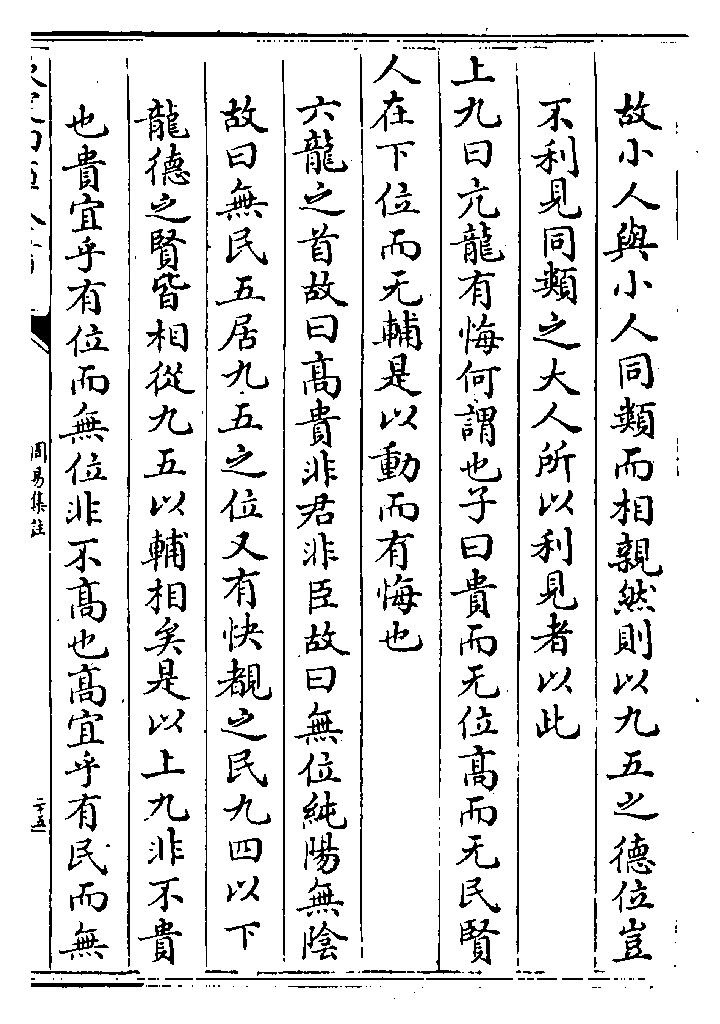 故小人與小人同類而相親然則以九五之德位豈
不利見同類之大人所以利見者以此
上九曰亢龍有悔何謂也子曰貴而无位高而无民賢
人在下位而无輔是以動而有悔也
六龍之首故曰髙貴非君非臣故曰無位純陽無陰
故曰無民五居九五之位又有快覩之民九四以下
龍德之賢皆相從九五以輔相矣是以上九非不貴
也貴宜乎有位而無位非不髙也髙宜乎有民而無
周易集註
二十五